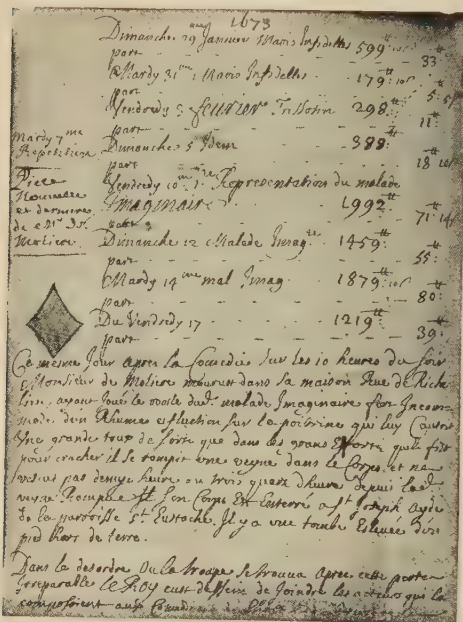 1673
Dimanche 29 Janvier Maris Infidelles 599
part 33
Mardy 31me Maris Infidelles 179
part 5
Vendredy 3 feurier Trissotin 298
part 11
Mardy 7me
Repetition
Dimanche 5 Idem 388
part 18
Piece
Nouuelle
et derniere
de Mr De
Moliere
Vendredy 10me 1re Representations du malade
Imaginaire 1992
part 71
Dimanche 12 Malade Imagre 1459
part 55
Mardy 14me mal Imag 1879
part 80
Du Vendredy 17 1219
part 39
Ce mesme Jour apres la Comedie sur les 10 heures du soir
Monsieur de Moliere mourust dans sa maison Rue de Riche
lieu, ayant Joué le roole dud. malade Imaginaire fort Incom
modé d'un Rhume et fluction sur la poitrine qui luy Causoit
Vne grande toux de sorte que dans les grans Efforts qu'il fist
pour cracher il se rompit une veyne dans le Corps et ne
vescut pas demye heure ou trois quarz d'heure depuis lad
veyne Rompue Son Corps Est Enterré a St Joseph Ayde
de la parroisse St Eustache. Il y a une tombe Esleuée d'un
pied hors de terre.
Dans le desordre Ou la troupe se trouua Apres cette perte
Irreparable Le ROY eust dessein de Joindre les acteurs qui la
composoient aux Comediens de